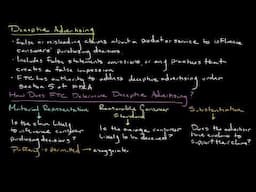 Deceptive Advertising
• False or misleading claims about a product or service to influence
consumers' purchasing decisions
• Includes false statements, omissions, or any practices that
create a false impression
• FTC has authority to address deceptive advertising under
Section 5 of
How Does FTC Determine Deceptive Advertising?
Material Representation Reasonable Consumer Standard Substantiation
Is the claim likely to influence consumer purchasing decisions?
Is the average consumer likely to be deceived?
Does the advertiser have evidence to support the claim?
Puffery is permitted → exaggerate